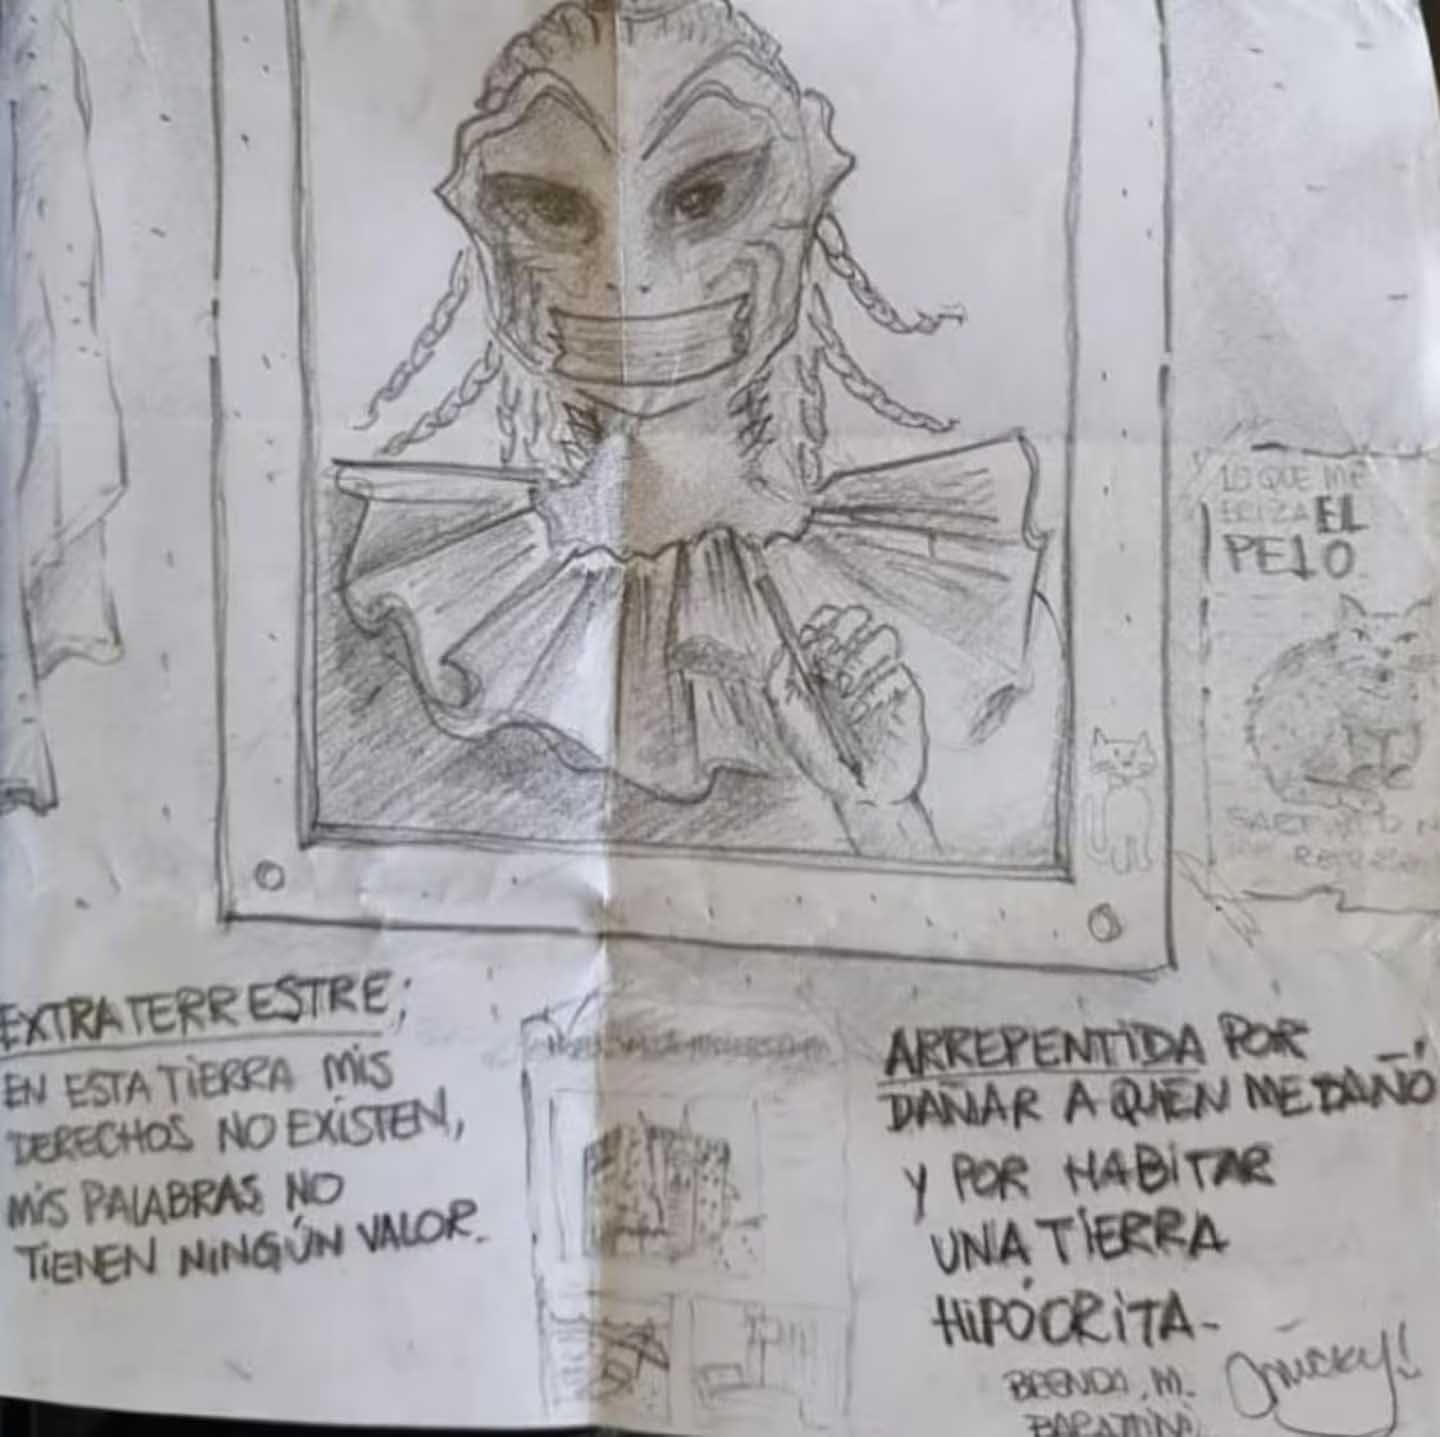 LO QUE ME
ERIZA EL
PELO
EXTRATERRESTRE;
EN ESTA TIERRA MIS
DERECHOS NO EXISTEN,
MIS PALABRAS NO
TIENEN NINGÚN VALOR.
ARREPENTIDA POR
DAÑAR A QUIEN ME DAÑÓ
Y POR HABITAR
UNA TIERRA
HIPÓCRITA-
BRENDA. M.
BARATTINI